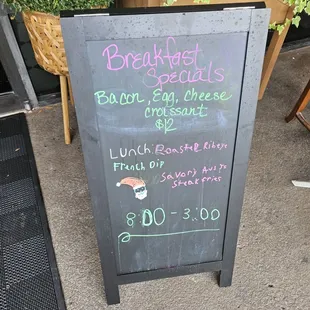 Breakfast
Specials
Bacon, Egg, cheese
croissant
$12
Lunch: Roasted Ribeye
French Dip
Savory Aus Ju
Steak fries
8:00 - 3:00